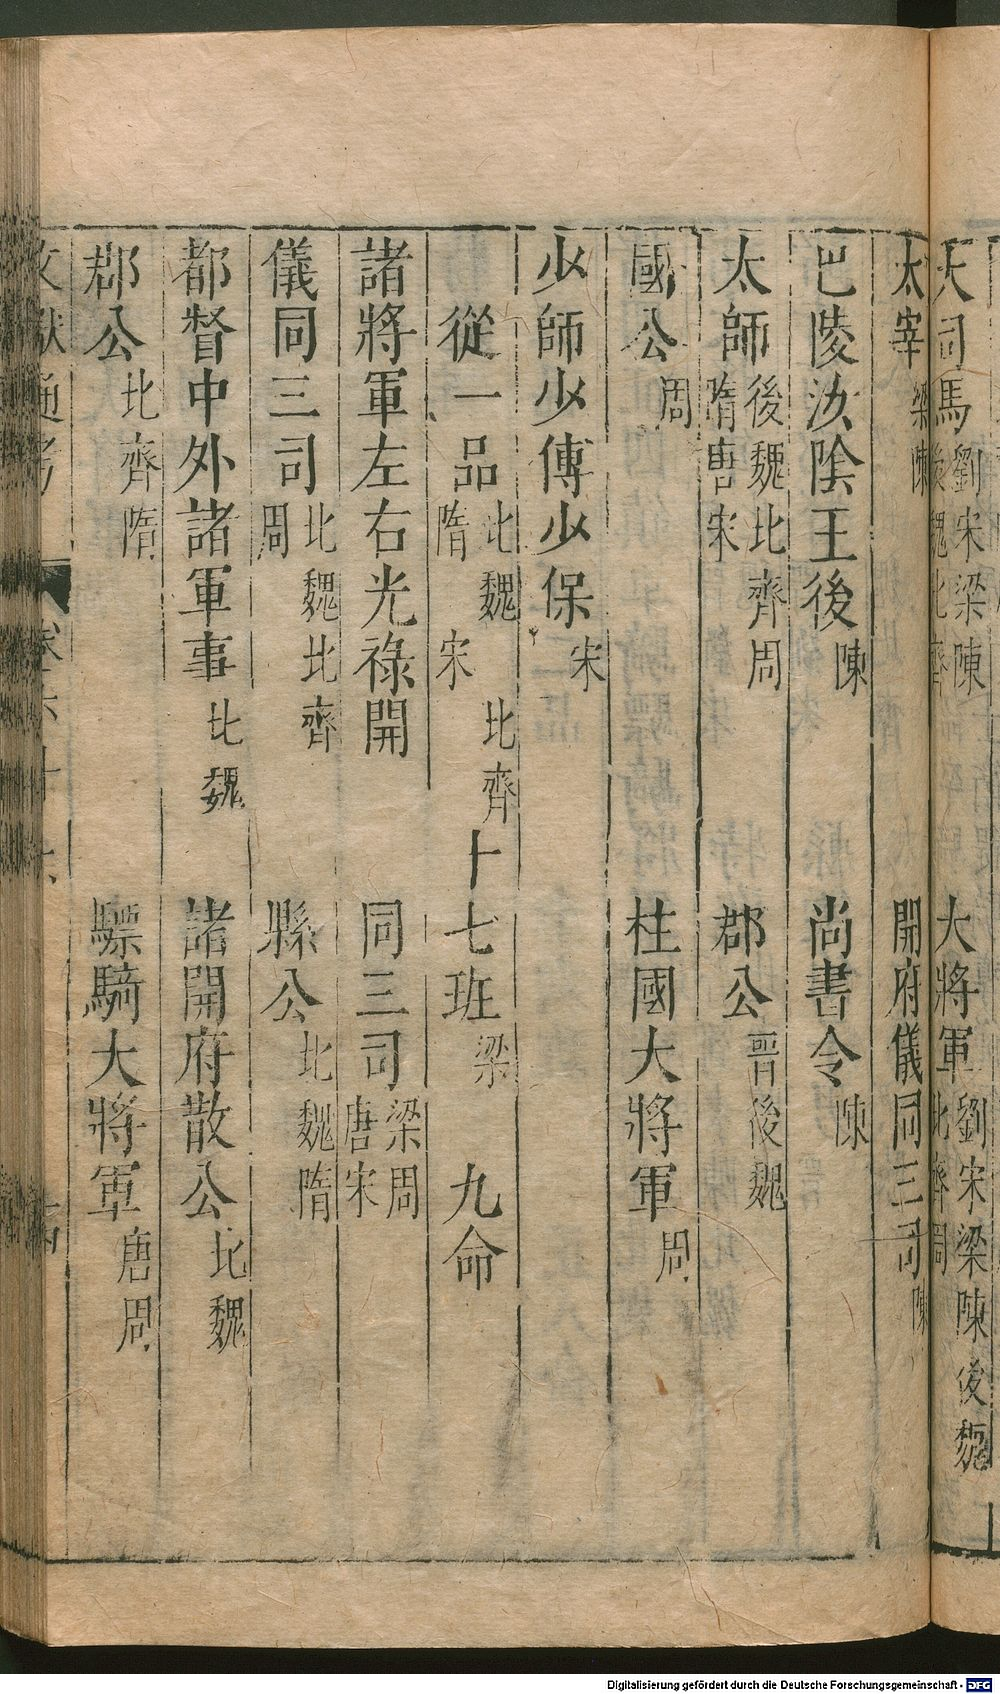 大司馬劉宋梁陳後魏北齊 大將軍劉宋梁陳後魏北齊周
太宰梁陳 開府儀同三司陳
巴陵汝陰王後陳 尚書令陳
太師後魏北齊周隋唐宋 郡公晉後魏
國公周 柱國大將軍周
少師少傅少保宋
從一品北魏隋宋 北齊 十七班梁 九命
諸將軍左右光祿開 同三司梁周唐宋
儀同三司北魏北齊周 縣公北魏隋
都督中外諸軍事北魏 諸開府散公北魏
郡公北齊隋 驃騎大將軍唐周
文獻通考 卷六十六
Digitalisierung gefördert durch die Deutsche Forschungsgemeinschaft - DFG